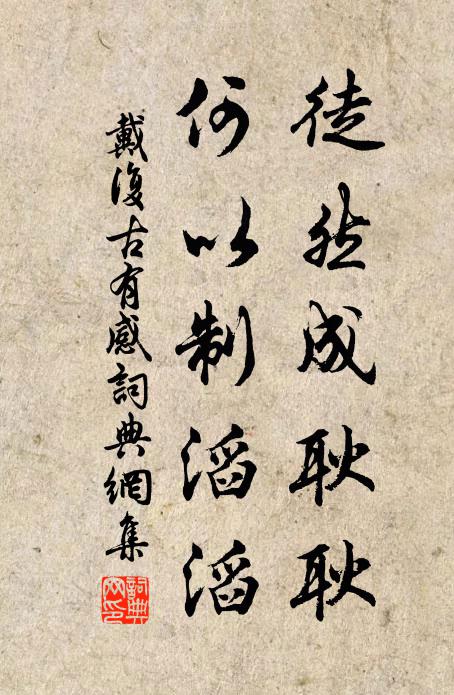 徒然成耿耿
何以制滔滔
戴復古有感詞典網集
詞典網印